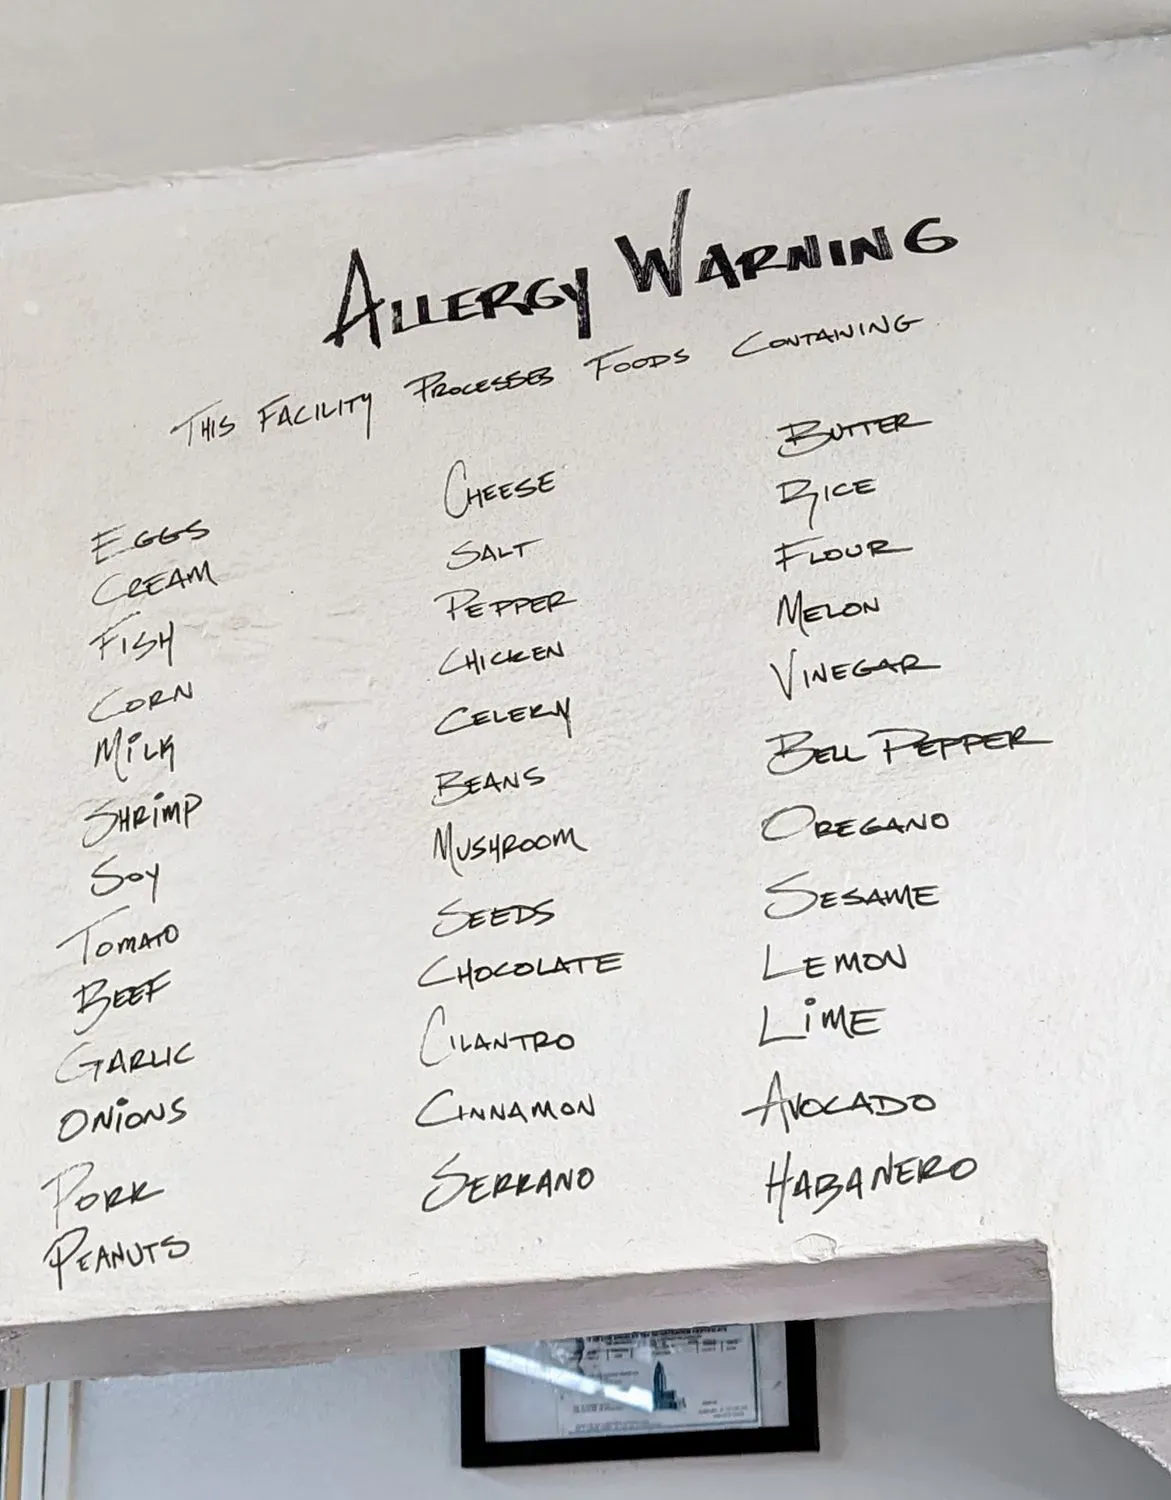 ALLERGY WARNING
THIS FACILITY PROCESSES FOODS CONTAINING
EGGS
CREAM
FISH
CORN
MiLK
SHRiMP
SOY
TOMATO
BEEF
GARLIC
ONiONS
PORK
PEANUTS
CHEESE
SALT
PEPPER
CHICKEN
CELERY
BEANS
MUSHROOM
SEEDS
CHOCOLATE
CILANTRO
CINNAMON
SERRANO
BUTTER
RICE
FLOUR
MELON
VINEGAR
BELL PEPPER
OREGANO
SESAME
LEMON
LiME
AVOCADO
HABANERO